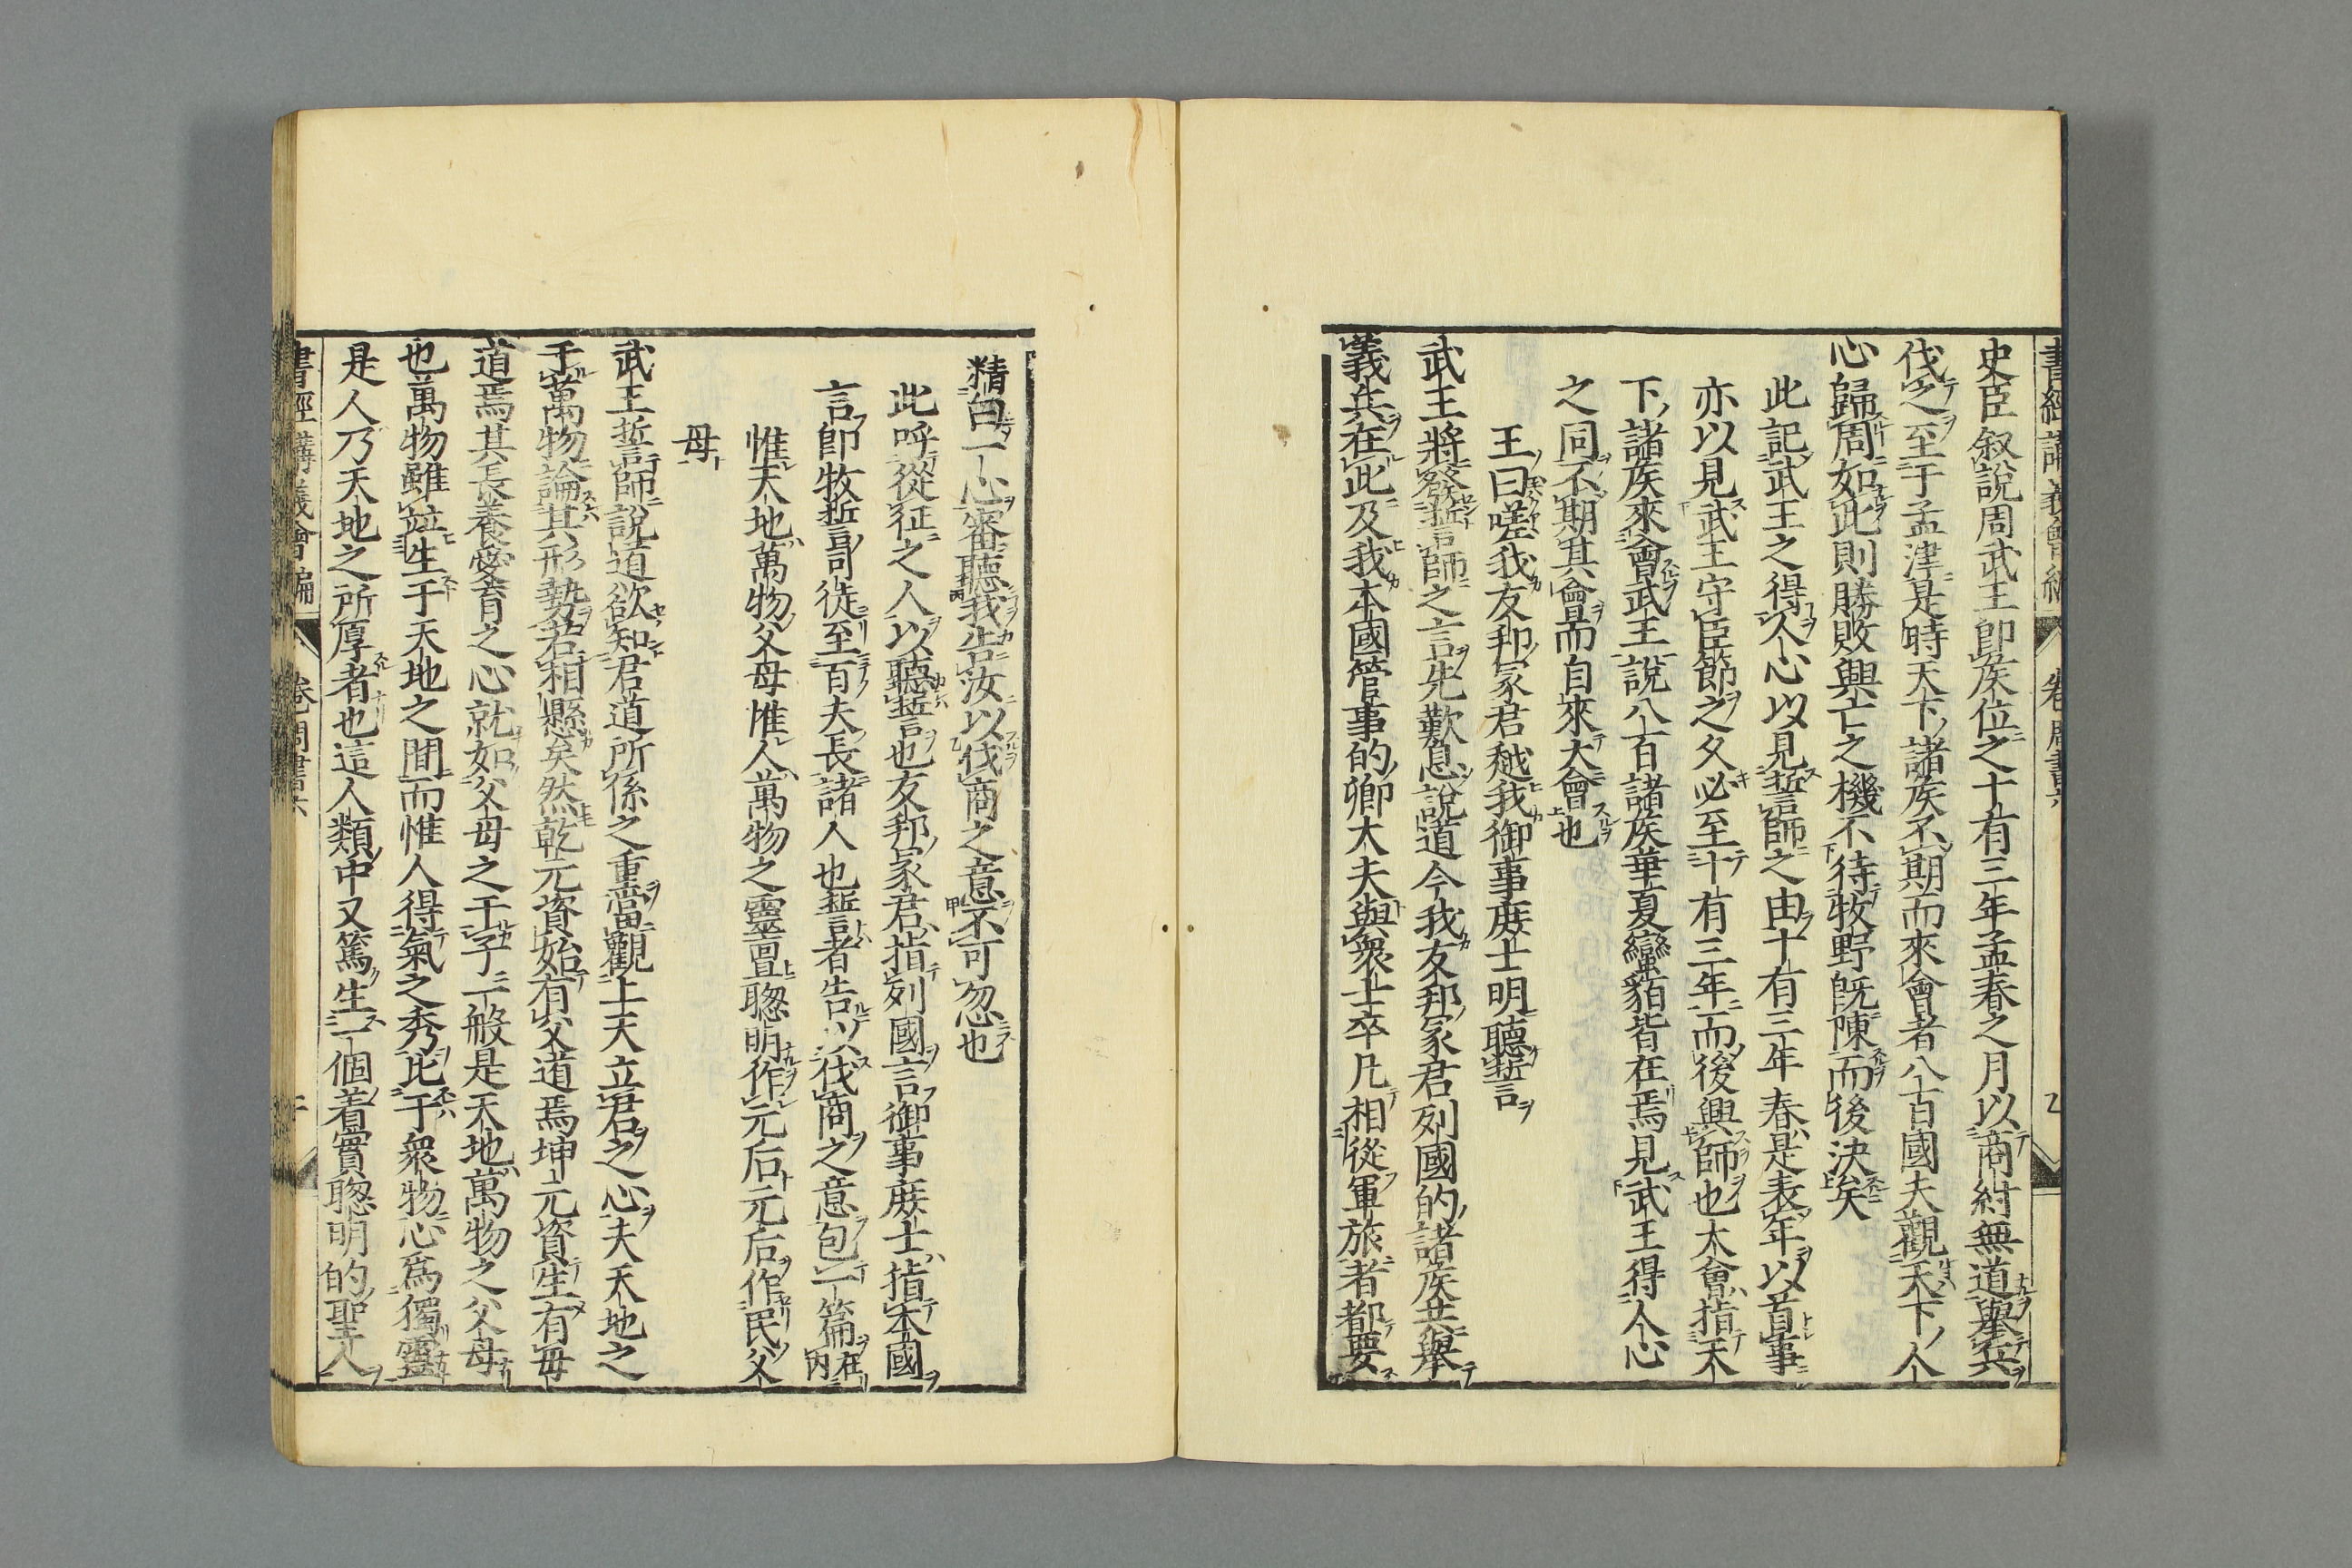 書經講義會編 卷周書六 乙
史臣叙說周武王卽矦位之十有三年孟春之月以商紂無道舉兵
伐之至于孟津是時天下諸矦不期而來會者八百國夫觀天下人
心歸周如此則勝敗興亡之機不待牧野旣陳而後決矣
此記武王之得人心以見誓師之由十有三年春是表年以首事
亦以見武王守臣節之久必至十有三年而後興師也大會指天
下諸矦來會武王說八百諸矦華夏蠻貊皆在焉見武王得人心
之同不期其會而自來大會也
王曰嗟我友邦冢君越我御事庶士明聽誓
武王將發誓師之言先歎息說道今我友邦冢君列國的諸矦共舉
義兵在此及我本國管事的卿大夫與衆士卒凡相從軍旅者都要
精白一心審聽我告汝以伐商之意不可忽也
此呼從征之人以聽誓也友邦冢君指列國言御事庶士指本國
言卽牧誓司徒至百夫長諸人也誓者告以伐商之意包一篇在內
惟天地萬物父母惟人萬物之靈亶聰明作元后元后作民父
母
武王誓師說道欲知君道所係之重當觀上天立君之心夫天地之
于萬物論其形勢若相懸矣然乾元資始有父道焉坤元資生有母
道焉其長養愛育之心就如父母之于子一般是天地萬物之父母
也萬物雖竝生于天地之間而惟人得氣之秀比于衆物心爲獨靈
是人乃天地之所厚者也這人類中又篤生一個着實聰明的聖人
書經講義會編 卷周書六